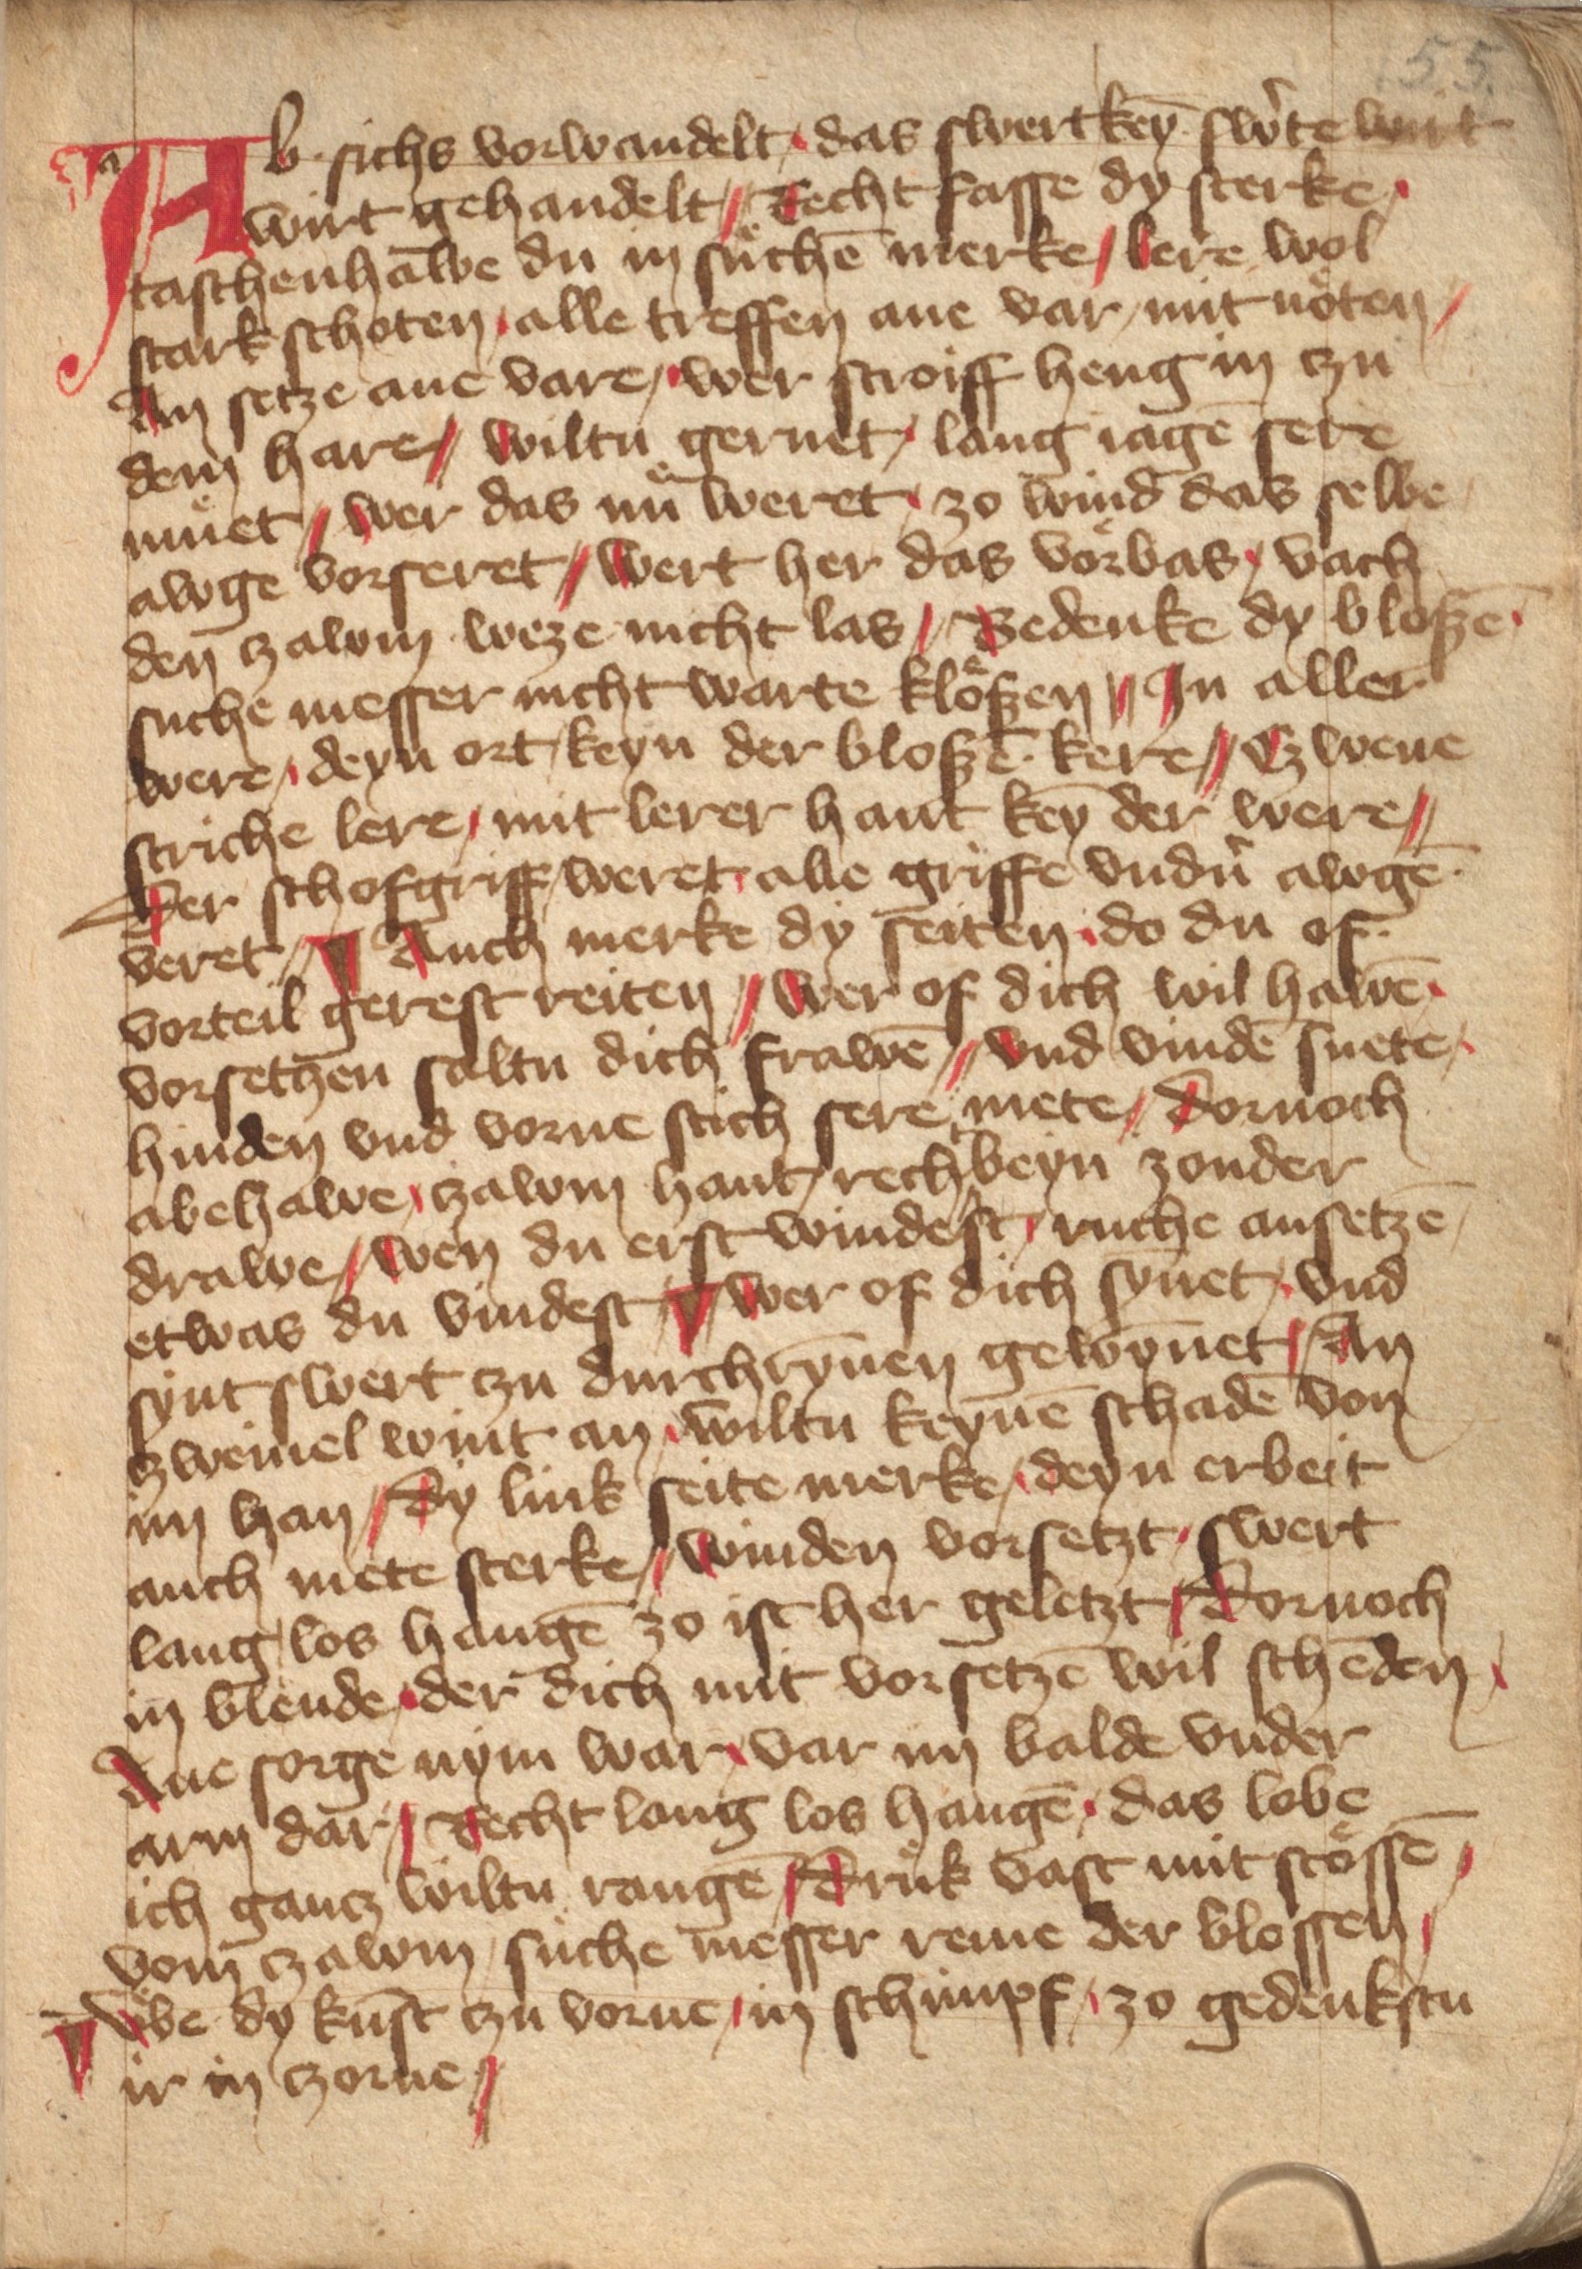 55.
Ab sichs vorwandelt / das swert keȳ sw'te wirt
wirt gehandelt // Recht fasse dy sterke /
taschenhāwe du in suͤchē merke / lere wol
stark schoten / alle treffen ane var / mit noͤten /
An setze ane vare / wer stroiff heng in czu
dem hare // wiltu geruet / lang iagē sere
muͤet // wer das nuͤ weret / zo wind das selbe
awge vorseret // Wert her das voͤrbas / vach
den czawm weze nicht las // Bedenke dy bloszē /
suche messer nicht warte kloͤszen // In aller
were / deyn ort / keyn der bloszē kere // Czwene
striche lere / mit lerer hant keȳ der were //
Der schofgriff / weret / alle griffe vndn' awgē
veret // Auch merke dy seiten / do du of
vorteil gerest reiten // wer of dich wil hawē /
vorsetzen saltu dich frawē // vnd vindē snete /
hinden vnd vorne stich sere mete // Dornoch
abehawe / czawm hant / rechbeyn zonder
drawe // wen du erst windest / ruche ansetzē /
etwas du vindest // wer of dich synet / vnd
synt swert czu durchrȳnen gewȳnet // An
czweiuel wint an / wiltu keynē schadē von
im han // Dy link seite merke / deyn erbeit
auch mete sterke // winden vorsetzt / swert
lang los hangē zo ist her geletzt // Dornoch
in blende / der dich mit vorsetzē wil schēden /
Ane sorge nym war / var im balde vnder
arm dar // Recht lang los hangē / das lobe
ich gancz wiltu rangē // Druͤk vast mit stoͤssē /
vom czawm / suͤche messer reme der blossen /
Vbe dy kunst czu vorne / in schimpf / zo gedenkstu
ir in czorne //